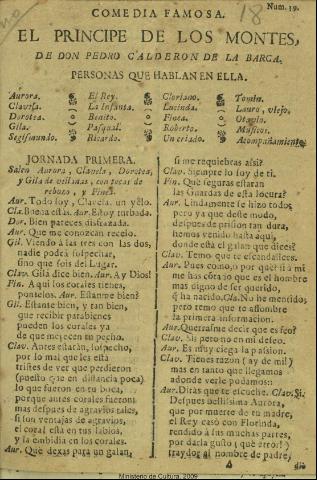 Num. 19.
18
COMEDIA FAMOSA.
EL PRINCIPE DE LOS MONTES,
DE DON PEDRO CALDERON DE LA BARCA.
PERSONAS QUE HABLAN EN ELLA.
Aurora. El Rey. Cloriano. Tomin.
Clavela. La Infanta. Lucinda. Lauro, viejo.
Dorotea. Benito. Flora. Otavio.
Gila. Pasqual. Roberto. Musicos.
Segismundo. Ricardo. Un criado. Acompañamiento.
JORNADA PRIMERA.
Salen Aurora, Clavela, Dorotea,
y Gila de villanas, con tocas de
rebozo, y Finel.
Aur. Todo soy, Clavela, un yelo.
Cla. Buena estàs. Aur. Estoy turbada.
Dor. Bien pareces disfrazada.
Aur. Que me conozcan recelo.
Gil. Viendo à las tres con las dos,
nadie podrà sospechar,
sino que sois del Lugar.
Clav. Gila dice bien. Aur. Ay Dios!
Fin. A qui los corales tienes,
ponselos. Aur. Estanme bien?
Gil. Estante bien, y tan bien,
que recibir parabienes
pueden los corales ya
de que merecen tu pecho.
Clav. Antes estaràn, sospecho,
por lo mal que les està
tristes de ver que perdieron
(puesto que en distancia poca)
lo que fueron en tu boca,
porque antes corales fueron
mas despues de agravios tales,
si son ventajas de agravios,
el coral està en tus labios,
y la embidia en los corales.
Aur. Que dexas para un galan,
si me requiebras assi?
Clav. Siempre lo soy de ti.
Fin. Què seguras estaràn
las Guardas de esta locura?
Aur. Lindamente se hizo todo;
pero ya que deste modo,
despues de prision tan dura,
hemos venido hasta aqui,
donde està el galan que dices?
Clav. Temo que te escandalices.
Aur. Pues como, ò por què? si à mi
me has dicho que es el hombre
mas digno de ser querido,
q ha nacido. Cla. No he mentido;
pero temo que te assombre
la primera informacion.
Aur. Querràsme decir que es feo?
Clav. Si, pero no en mi deseo.
Aur. Es muy ciega la passion.
Clav. Tienes razon (ay de mi!)
mas en tanto que llegamos
adonde verle podamos::
Aur. Dirás que te escuche. Clav. Si.
Despues bellissima Aurora,
que por muerte de tu madre,
el Rey casò con Florinda,
rendido à sus muchas partes,
por darla gusto (què error!)
traydor al nombre de padre,
A
Ministerio de Cultura, 2009